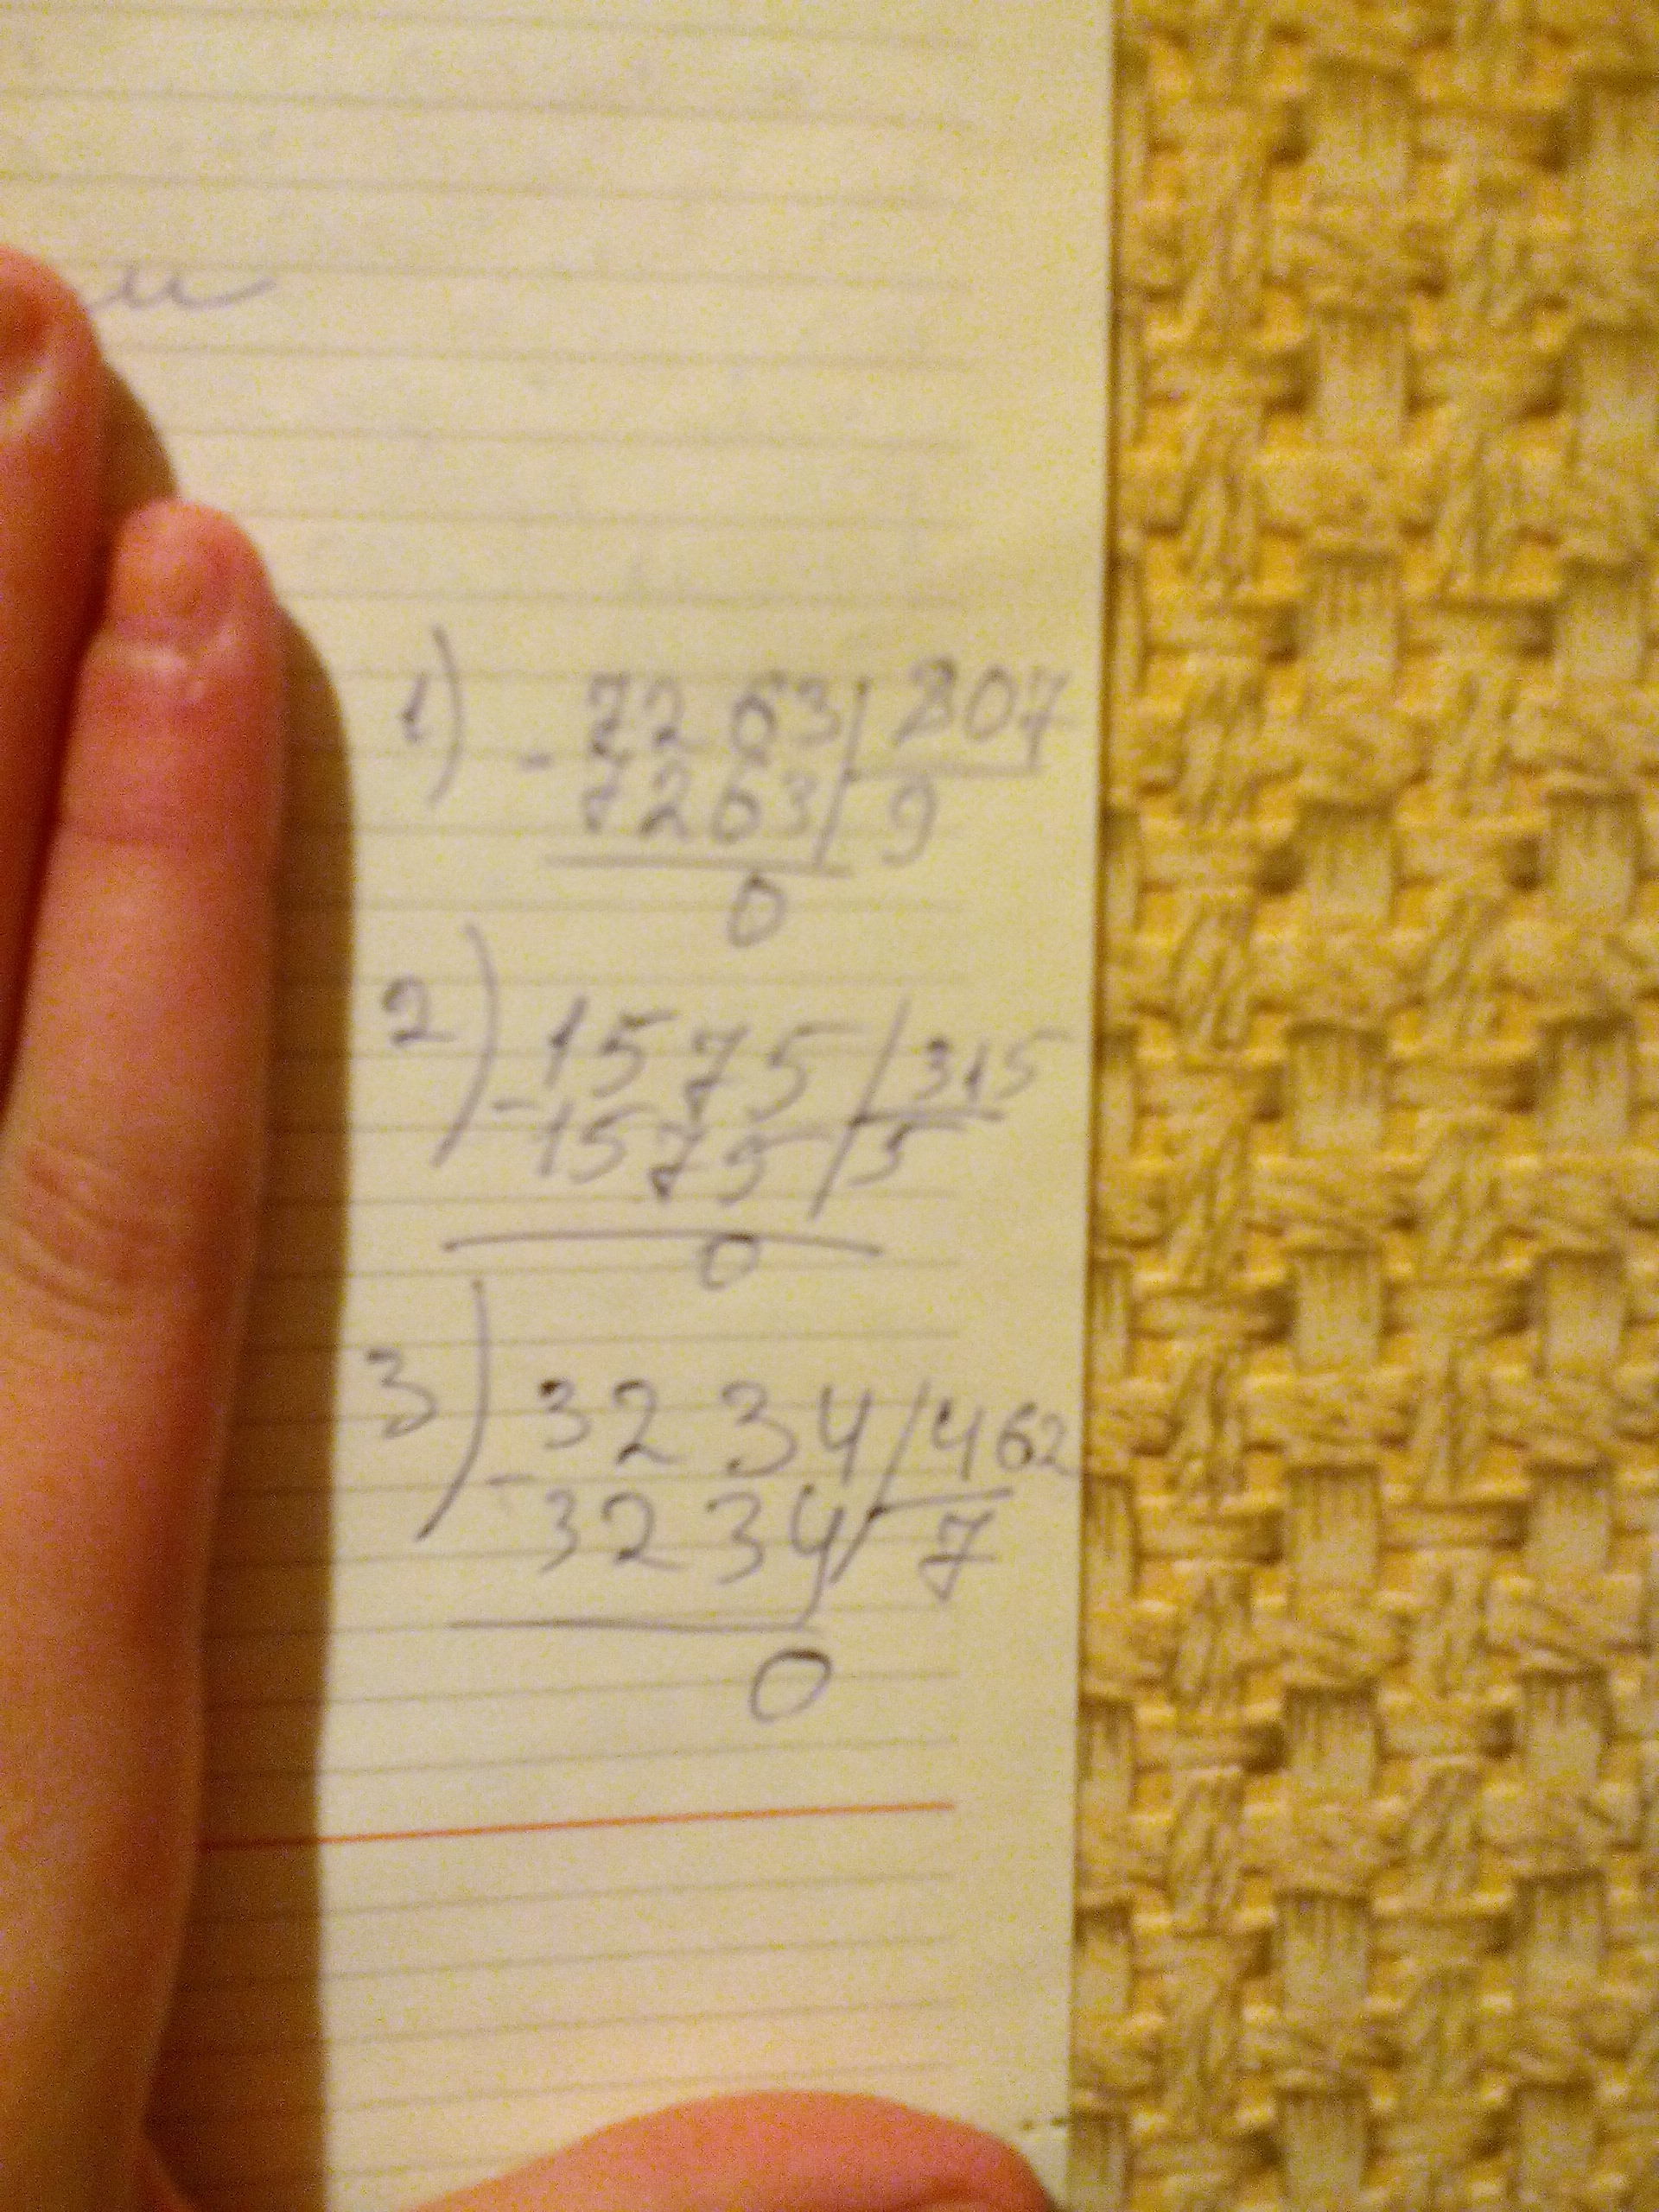 1) - 7263 | 807
7263 | 9
0
2) - 1575 | 315
1575 | 5
0
3) - 3234 | 462
3234 | 7
0